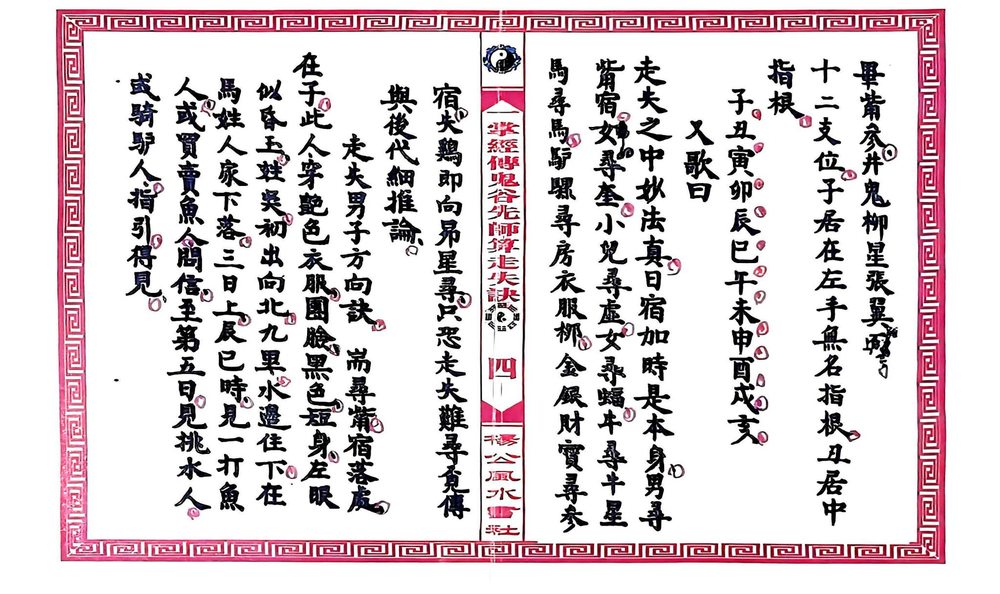 畢觜參井鬼柳星張翼
十二支位子居在左手無名指根丑居中
指根
子丑寅卯辰巳午未申酉戌亥
又歌曰
走失之中妙法真日宿加時是本身男尋
觜宿女尋奎小兒尋虛女尋蝠牛尋牛星
馬尋馬驴騾尋房衣服柳金銀財寶尋參
掌經傳鬼谷先師算走失訣
四
楊公風水書社
宿失鷄即向昴星尋只恐走失難尋覓傳
與後代細推論
走失男子方向訣 耑尋觜宿落處
在子此人穿艷色衣服團臉黑色短身左眼
似昏玉姓吳初出向北九里水邊住下在
馬姓人家下落三日上辰巳時見一打魚
人或買賣魚人問信至第五日見挑水人
或騎驴人指引得見